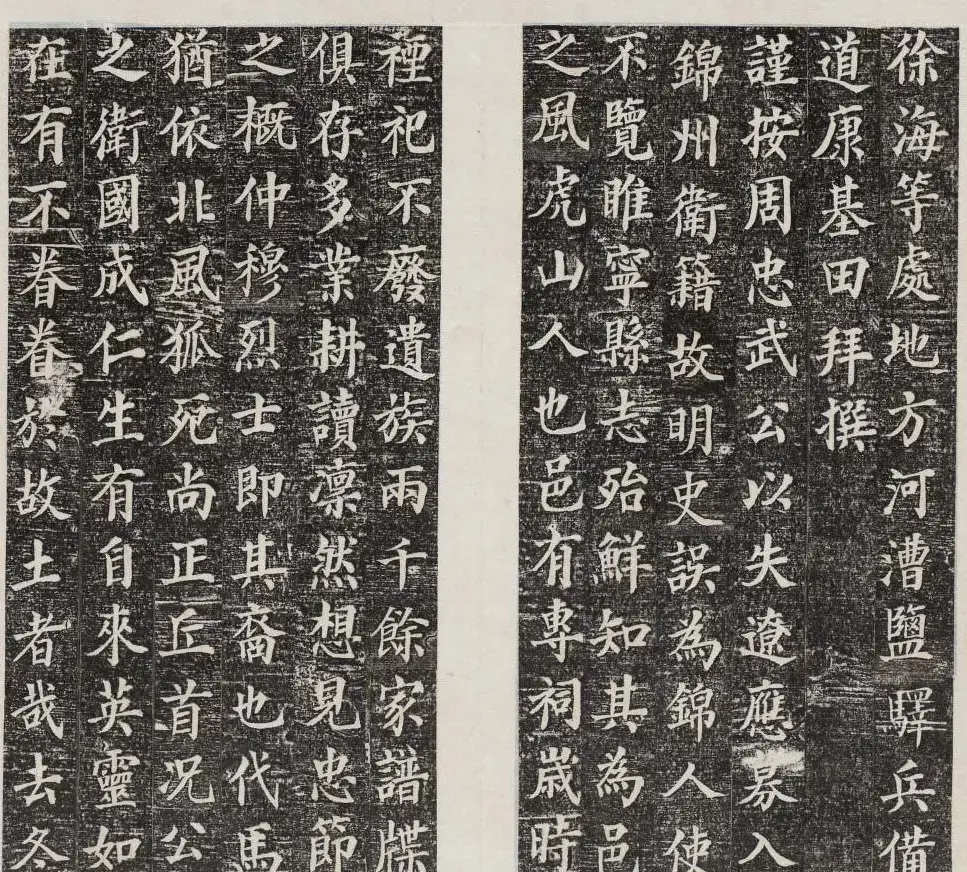 徐海等處地方河漕鹽驛兵備
道康基田拜撰
謹按周忠武公以失遼應募入
錦州衛籍故明史誤為錦人使
不覽睢寧縣志殆鮮知其為邑
之風虎山人也邑有專祠歲時
禋祀不廢遺族兩千餘家譜牒
俱存多業耕讀凜然想見忠節
之概仲穆烈士即其裔也代馬
猶依北風狐死尚正丘首況公
之衛國成仁生有自來英靈如
在有不眷眷於故土者哉去冬